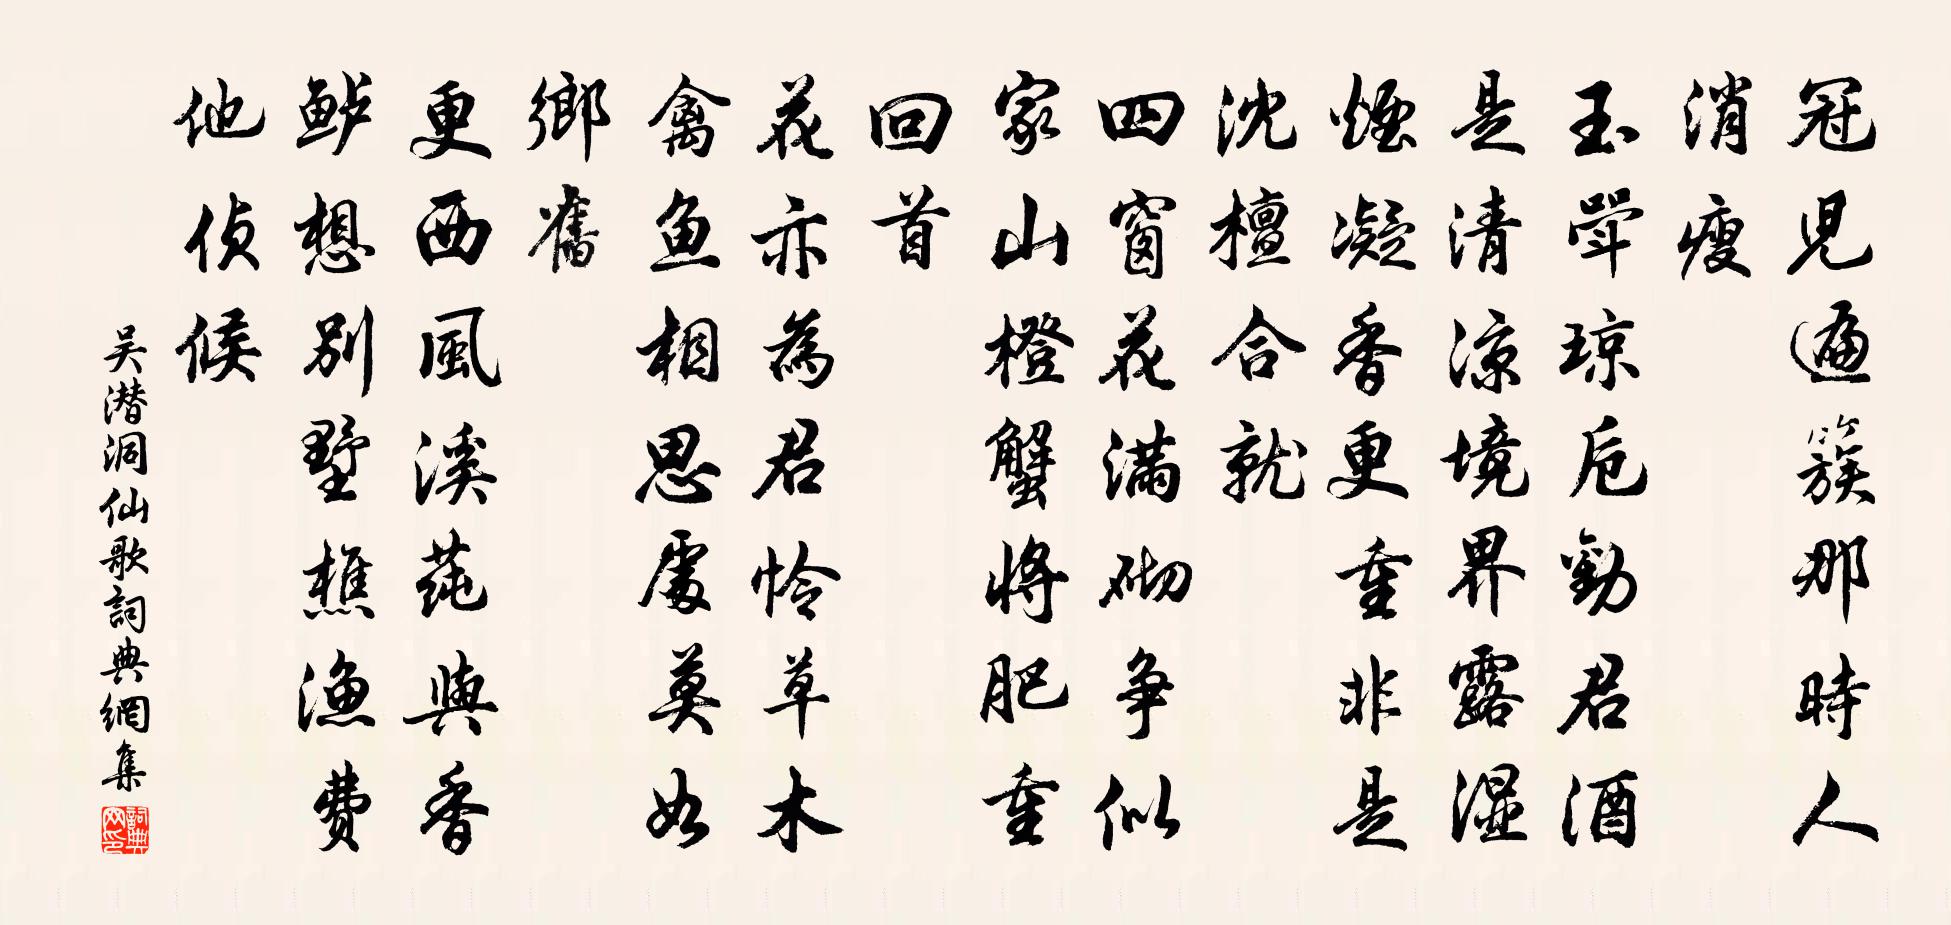 冠兒遍簇那時人
消瘦
玉斝琼卮勸君酒
是清凉境界露湿
煙凝香更重非是
沈檀合就
四窗花满砌争似
家山橙蟹将肥重
回首
花亦為君怜草木
禽鱼相思處莫如
鄉舊
更西風溪莼與香
鲈想别墅樵漁費
他侦候
吴潜洞仙歌詞典網集
詞典网印